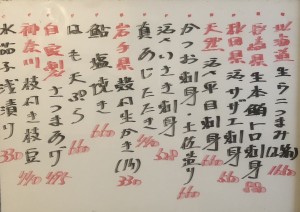 北海道 生ウニつまみ(2篇) 1100
生本鮪トロ刺身 880
秋田県 活サザエ刺身 660
天然 活〆平目刺身 660
かつお刺身・土佐造り 660
活〆いさき刺身
真あじたたき 550
岩手県 殻付生かき(1ヶ) 330
鮎塩焼き
はも天ぷら 660
自家製 さつまあげ 495
神奈川 枝付き枝豆 440
水茄子浅漬り 330